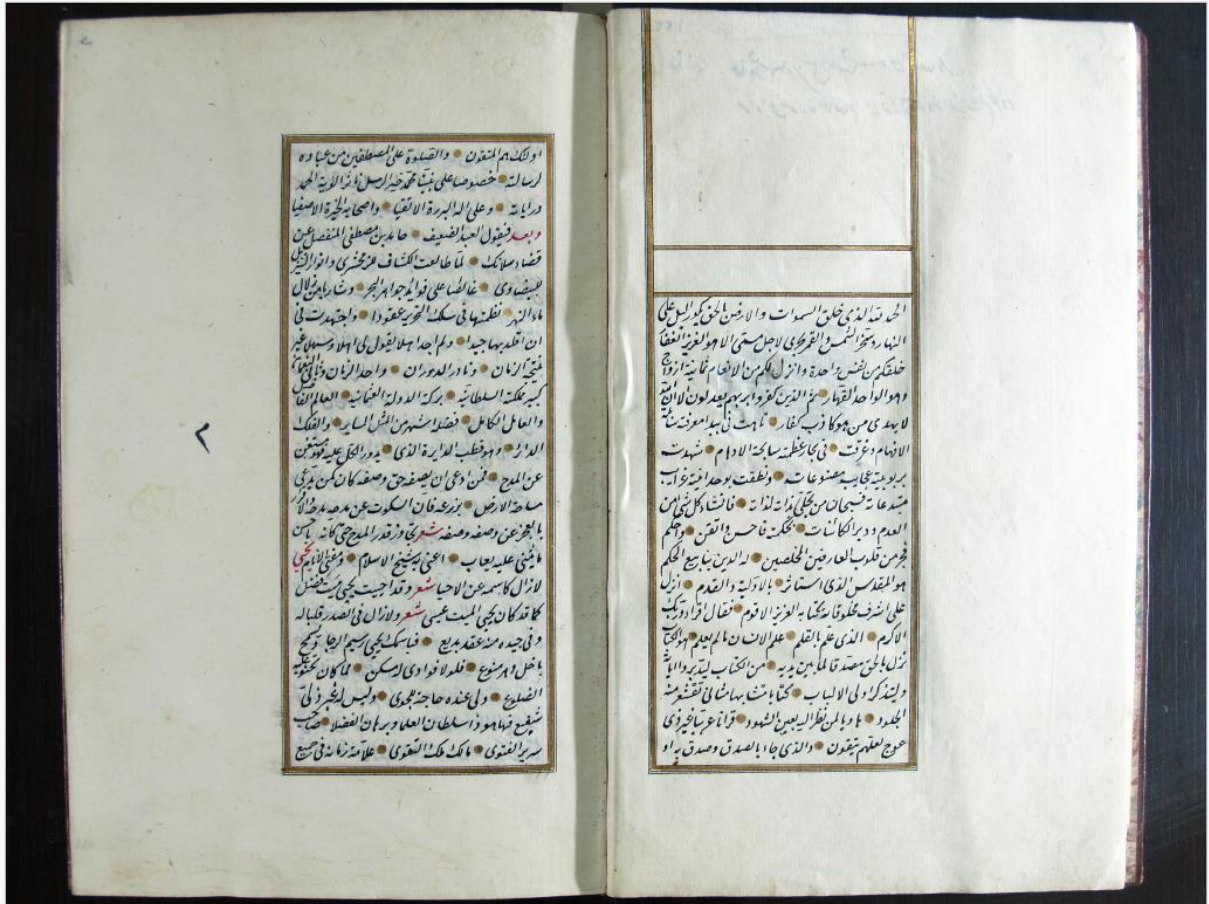 الحمد لله الذى خلق السموات والارض بالحق يكور الليل على
النهار وسخر الشمس والقمر يجرى لاجل مسمى الا هو العزيز الغفا
خلقكم من نفس واحدة وانزل لكم من الانعام ثمانية ازواج
وهو الواحد القهار ثم الذين كفروا بربهم يعدلون الا ان الله
لا يهدى من هو كاذب كفار تاهت فى بيدا معرفته
الافهام وغرقت فى بحار عظمته سابحة الاوهام شهدت
بربوبيته عجايب مصنوعاته ونطقت بوحدانيته غرايب
مبتدعاته فسبحان من تجلى بذاته لذاته فانشاء كل شئ من
العدم ودبر الكائنات بحكمته فاحسن واتقن واحكم
فجر من قلوب العارفين المخلصين له الدين ينابيع الحكم
هو المقدس الذى استاثر بالاولية والقدم انزل
على اشرف مخلوقاته كتابه العزيز الاقوم فقال اقرا وربك
الاكرم الذى علم بالقلم علم الانسان مالم يعلم هو الكتاب
نزل بالحق مصدقا لما بين يديه من الكتاب ليتدبروا اياته
وليتذكر اولى الالباب كتابا متشابها مثانى تقشعر منه
الجلود هاديا لمن نظر اليه بعين الشهود قرانا عربيا غير ذى
عوج لعلهم يتقون والذى جاء بالصدق وصدق به او
اولئك هم المتقون والصلوة على المصطفين من عباده
لرسالته خصوصا على نبينا محمد خير الرسل الاية الحمد
وراياته وعلى اله البررة الاتقيا واصحابه الخيرة الاصفيا
وبعد فيقول العبد الضعيف حامد بن مصطفى المنفصل عن
قضاء سلانيك لما طالعت الكشاف للزمخشرى وانوار التنزيل
للبيضاوى غائصا على فوائد جواهر البحر زلال
ماء النهر نظمتها فى سلك التحرير عقودا واجتهدت فى
ان اقلد بها جيدا ولم اجد اهلا يقول لى اهلا وسهلا غير
الزمان ونادر الدوران وواحد الزمان
كبير مملكة السلطانية بركة الدولة العثمانية العالم الفاضل
والعامل الكامل فضله اشهر من المثل الساير والفلك
الدائر وهو قطب الدايرة الذى يدور الكل عليه
عن المدح فمن ادعى ان يصفه حق وصفه كان كمن يدعى
مساحة الارض بذرعه فان السكوت عن مدحه مدحه والاقرار
بالعجز عن وصفه وصفه شعر تجاوز قدر المدح حتى كانه باحسن
ما يثنى عليه يعاب اعنى به شيخ الاسلام ومفتى الانام يحيى
لازال كاسمه عن الاحيا شعر وقد احييت يحيى ميت فضل
كما قد كان يحيى الميت عيسى شعر ولازال فى الصدر قلبا له
وفى جيده منه عقد بديع
فلولا فوادى له مسكن لما كان تحنو عليه
الضلوع ولى عنده حاجة وليس له غير ذلى
شفيع فها هو ذا سلطان العلما وبرهان الفضلا صاحب
سرير الفتوى مالك ملك التقوى علامة زمانه فى جميع
٢